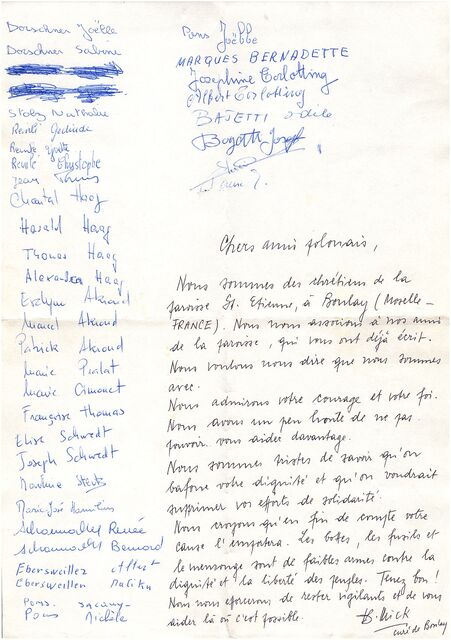 Dorschner Joëlle
Dorschner Sabine
Stolz Nathalie
Christophe
Jean
Chantal Haag
Harald Haag
Thomas Haag
Alexandra Haag
Evelyne Akroud
Marcel Akroud
Patrick Akroud
Marie Pralat
Marie Cimonet
Françoise Thomas
Elise Schwedt
Joseph Schwedt
Martine
Marie José
Schoumacher Renée
Schoumacher Bernard
Ebersweiller
Ebersweiller
Pons
Pons Michèle
Pons Joëlle
MARQUES BERNADETTE
Joséphine Corlotting
Albert Corlotting
BAJETTI Odile
Bagatti Joseph
Chers amis polonais,
Nous sommes des chrétiens de la
paroisse St. Etienne, à Boulay (Moselle-
FRANCE). Nous nous associons à nos amis
de la paroisse, qui vous ont déjà écrit.
Nous voulons vous dire que nous sommes
avec.
Nous admirons votre courage et votre foi.
Nous avons un peu honte de ne pas
pouvoir vous aider davantage.
Nous sommes tristes de savoir qu'on
bafoue votre dignité et qu'on voudrait
supprimer vos efforts de solidarité.
Nous croyons qu'en fin de compte votre
cause l'emportera. Les bottes, les fusils et
le mensonge sont de faibles armes contre la
dignité et la liberté des peuples. Tenez bon!
Nous nous efforcerons de rester vigilants et de vous
aider là où c'est possible.
curé de Boulay